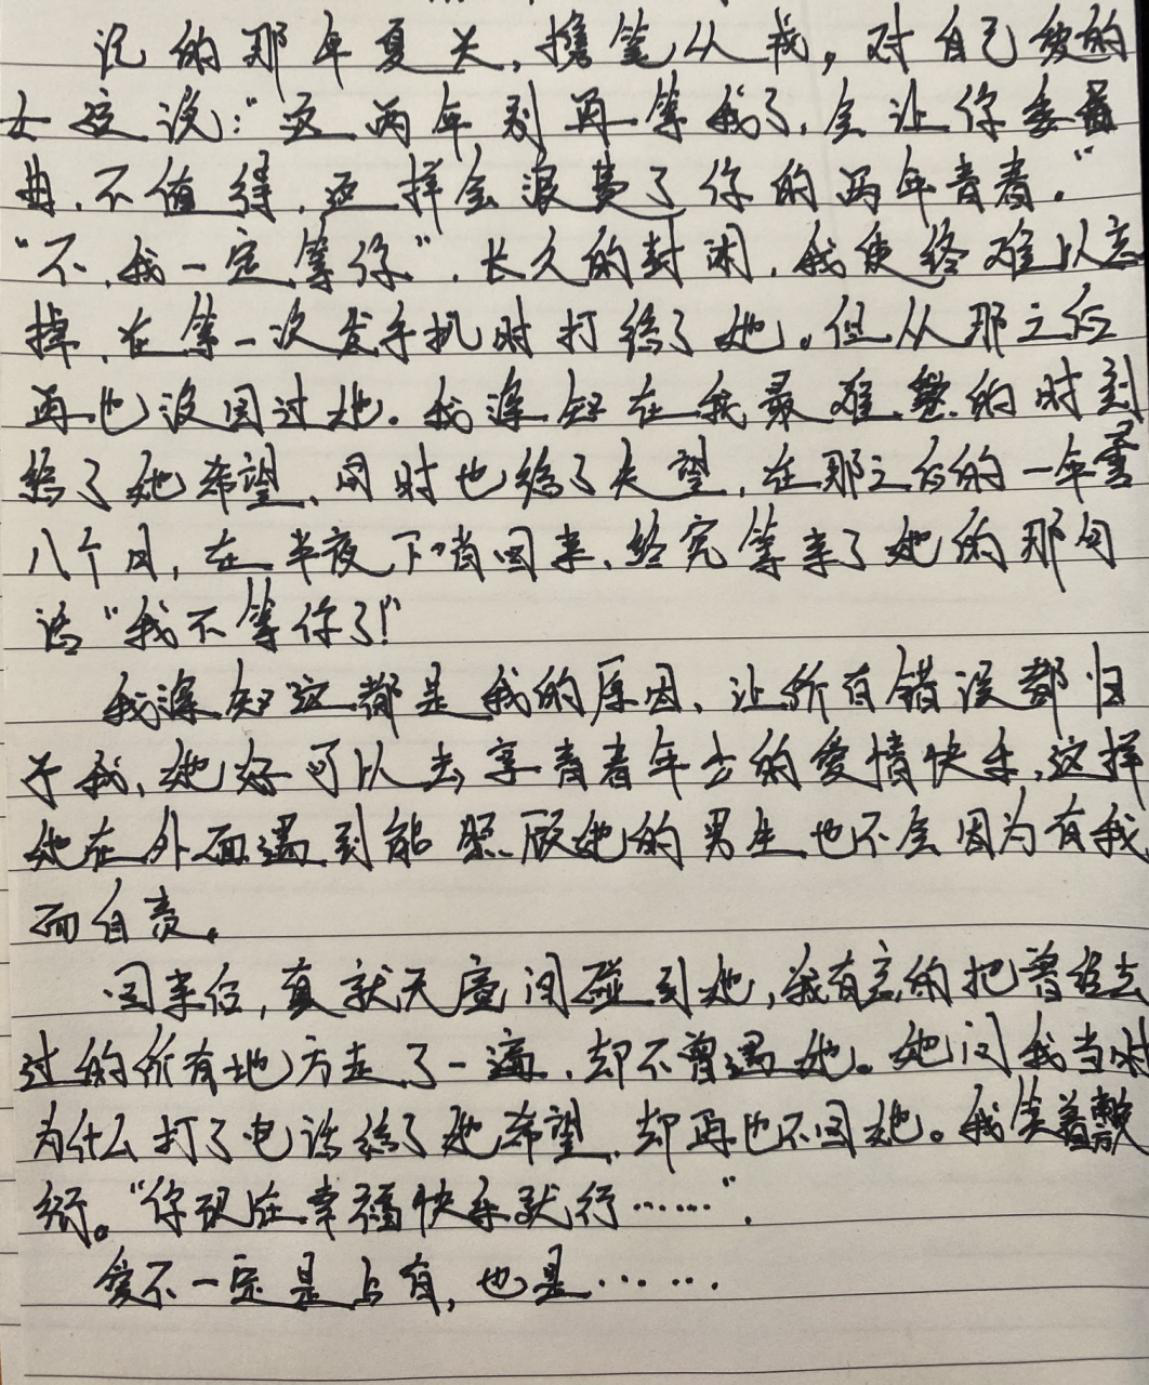 记的那年夏天,携笔从戎,对自己爱的
女孩说:"这两年别再等我了,会让你委
曲,不值得,这样会浪费了你的两年青春。"
"不,我一定等你",长久的封闭,我使终难以忘
掉,在第一次发手机时打给了她。但从那之后
再也没回过她。我深知在我最难熬的时刻
给了她希望,同时也给了失望,在那之后的一年零
八个月,在半夜下哨回来,终究等来了她的那句
话"我不等你了!"
我深知这都是我的原因,让所有错误都归
于我,她好可以去享青春年少的爱情快乐,这样
她在外面遇到能照顾她的男生也不会因为有我
而自责。
回来后,真就天意间碰到她,我有意的把曾经去
过的所有地方走了一遍,却不曾遇她。她问我当时
为什么打了电话给了她希望,却再也不回她。我笑着敷
衍。"你现在幸福快乐就行……",
爱不一定是占有,也是……